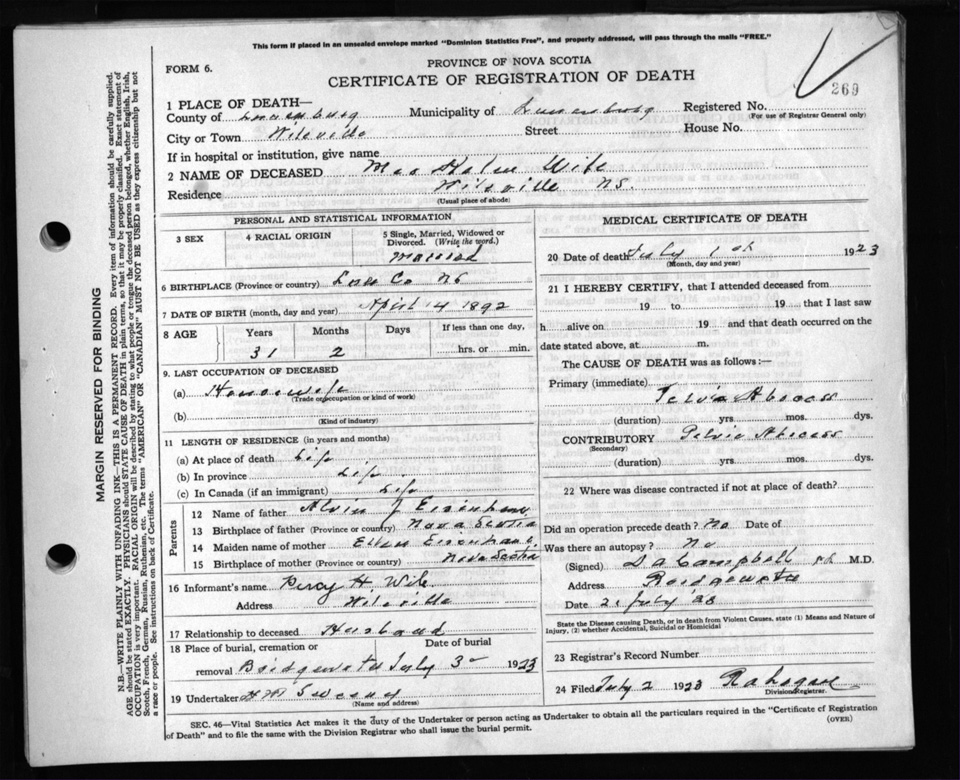 This form if placed in an unsealed envelope marked "Dominion Statistics Free", and properly addressed, will pass through the mails "FREE."
FORM 6.
PROVINCE OF NOVA SCOTIA
CERTIFICATE OF REGISTRATION OF DEATH
269
1 PLACE OF DEATH—
County of Lunenburg Municipality of Lunenburg Registered No.
(For use of Registrar General only)
City or Town Wileville Street House No.
If in hospital or institution, give name
2 NAME OF DECEASED Wile
Residence Wileville NS.
(Usual place of abode)
PERSONAL AND STATISTICAL INFORMATION
3 SEX
4 RACIAL ORIGIN
5 Single, Married, Widowed or Divorced. (Write the word.)
Married
6 BIRTHPLACE (Province or country) Lun Co NS
7 DATE OF BIRTH (month, day and year) April 4 1892
8 AGE Years Months Days If less than one day,
31 2 hrs. or min.
9. LAST OCCUPATION OF DECEASED
(a) Housewife
(Trade or occupation or kind of work)
(b)
(Kind of industry)
11 LENGTH OF RESIDENCE (in years and months)
(a) At place of death Life
(b) In province Life
(c) In Canada (if an immigrant) Life
Parents
12 Name of father Alvin J Eisenhaur
13 Birthplace of father (Province or country) Nova Scotia
14 Maiden name of mother Ellen Eisenhaur
15 Birthplace of mother (Province or country) Nova Scotia
16 Informant's name Percy H Wile
Address Wileville
17 Relationship to deceased Husband
18 Place of burial, cremation or removal Date of burial
Bridgewater July 3 1923
19 Undertaker
(Name and address)
MEDICAL CERTIFICATE OF DEATH
20 Date of death July 1 st 1923
(Month, day and year)
21 I HEREBY CERTIFY, that I attended deceased from
19 to 19 that I last saw
h alive on 19 and that death occurred on the
date stated above, at m.
The CAUSE OF DEATH was as follows:—
Primary (immediate) Pelvic Abscess
(duration) yrs mos. dys.
CONTRIBUTORY Pelvic Abscess
(Secondary)
(duration) yrs mos. dys.
22 Where was disease contracted if not at place of death?
Did an operation precede death? No Date of
Was there an autopsy? No
(Signed) D A Campbell M.D.
Address Bridgewater
Date 2. July '23
State the Disease causing Death, or in death from Violent Causes, state (1) Means and Nature of Injury, (2) whether Accidental, Suicidal or Homicidal
23 Registrar's Record Number
24 Filed July 2 1923
Division Registrar.
SEC. 46—Vital Statistics Act makes it the duty of the Undertaker or person acting as Undertaker to obtain all the particulars required in the "Certificate of Registration of Death" and to file the same with the Division Registrar who shall issue the burial permit.
(OVER)
MARGIN RESERVED FOR BINDING
N.B.—WRITE PLAINLY WITH UNFADING INK—THIS IS A PERMANENT RECORD. Every item of information should be carefully supplied.
AGE should be stated EXACTLY. PHYSICIANS should STATE CAUSE OF DEATH in plain terms, so that it may be properly classified. Exact statement of
OCCUPATION is very important. RACIAL ORIGIN will be described by stating to what people or tongue the deceased person belonged, whether English, Irish,
Scotch, French, German, Russian, Ruthenian, etc. The terms "AMERICAN" OR "CANADIAN" MUST NOT BE USED as they express citizenship but not
a race or people. See instructions on back of Certificate.